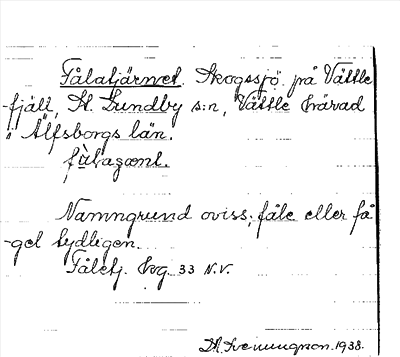 Fålatjärnet. Skogssjö på Vättle
-fjäll, St. Lundby s:n, Vättle härad
i Älfsborgs län.

Namngrund oviss; fåle eller få
-gel tydligen.
Fåletj. Evg. 33 N.V.
1938.